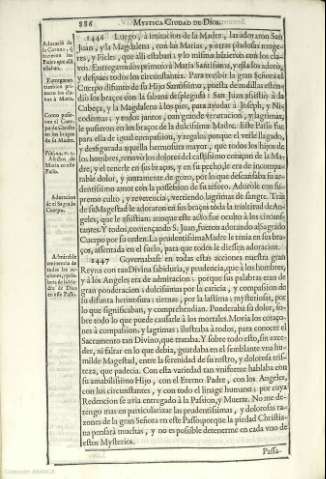 886 MYSTICA CIUDAD DE DIOS.
1446 Luego, à imitacion de la Madre, la adoraron San
Juan, y la Magdalena, con las Marias, y otras piadosas muge-
res, y Fieles, que allì estaban; y lo mismo hizieron con los cla-
vos. Entregaronlos primero à Maria Santissima, y esta los adorò,
y despues todos los circunstantes. Para recibir la gran Señora el
Cuerpo difunto de su Hijo Santissimo, puesta de rodillas esten-
diò los braços con la sabana desplegada. San Juan assistiò à la
Cabeça, y la Magdalena à los pies, para ayudar à Joseph, y Ni-
codemus; y todos juntos, con grande veneracion, y lagrimas,
le pusieron en los braços de la dulcissima Madre. Este Passo fue
para ella de igual compassion, y regalo; porque el verle llagado,
y desfigurada aquella hermosura mayor, que todos los hijos de
los hombres, renovò los dolores del castissimo coraçon de la Ma-
dre; y el tenerle en sus braços, y en su pecho, le era de incompa-
rable dolor, y juntamente de gozo, por lo que descansaba su ar-
dentissimo amor con la possession de su tesoro. Adoròle con su-
premo culto, y reverencia, vertiendo lagrimas de sangre. Tràs
de su Magestad le adoraron en sus braços toda la multitud de An-
geles, que le assistian; aunque este acto fue oculto à los circuns-
tantes. Y todos, començando S. Juan, fueron adorando al Sagrado
Cuerpo por su orden. La prudentissima Madre le tenia en sus bra-
ços, assentada en el suelo, para que todos le diessen adoracion.
1447 Governabase en todas estas acciones nuestra gran
Reyna con tan Divina sabiduria, y prudencia, que à los hombres,
y à los Angeles era de admiracion; porque sus palabras eran de
gran ponderacion; dulcissimas por la caricia, y compassion de
su difunta hermosura; tiernas, por la lastima; mysteriosas, por
lo que significaban, y comprehendian. Ponderaba su dolor, so-
bre todo lo que puede causarle à los mortales. Movia los coraço-
nes à compassion, y lagrimas; ilustraba à todos, para conocer el
Sacramento tan Divino, que trataba. Y sobre todo esto, sin exce-
der, ni faltar en lo que debia, guardaba en el semblante una hu-
milde Magestad, entre la serenidad de su rostro, y dolorosa tris-
teza, que padecia. Con esta variedad tan uniforme hablaba con
su amabilissimo Hijo, con el Eterno Padre, con los Angeles,
con los circunstantes, y con todo el linage humano; por cuya
Redencion se avia entregado à la Passion, y Muerte. No me de-
tengo mas en particularizar las prudentissimas, y dolorosas ra-
zones de la gran Señora en este Passo; porque la piedad Christia-
na pensarà muchas, y no es possible detenerme en cada uno de
estos Mysterios.
Passa-
Adoracion
de el Sagrado
Cuerpo.